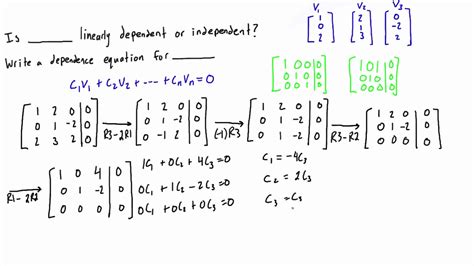 Is ______ linearly dependent or independent?
Write a dependence equation for ______
C₁V₁ + C₂V₂ + --- + CₙVₙ = 0
V₁ V₂ V₃
[1 0 2] [2 1 3] [0 -2 2]
[1 0 0 | 0
0 1 0 | 0
0 0 1 | 0]
[1 0 1 | 0
0 1 0 | 0
0 0 0 | 0]
[1 2 0 | 0
0 1 -2 | 0
2 3 2 | 0]
R3-2R1
[1 2 0 | 0
0 1 -2 | 0
0 -1 2 | 0]
(-1)R3
[1 2 0 | 0
0 1 -2 | 0
0 1 -2 | 0]
R3-R2
[1 2 0 | 0
0 1 -2 | 0
0 0 0 | 0]
R1-2R2
[1 0 4 | 0
0 1 -2 | 0
0 0 0 | 0]
1C₁ + 0C₂ + 4C₃ = 0
0C₁ + 1C₂ - 2C₃ = 0
0C₁ + 0C₂ + 0C₃ = 0
C₁ = -4C₃
C₂ = 2C₃
C₃ = C₃